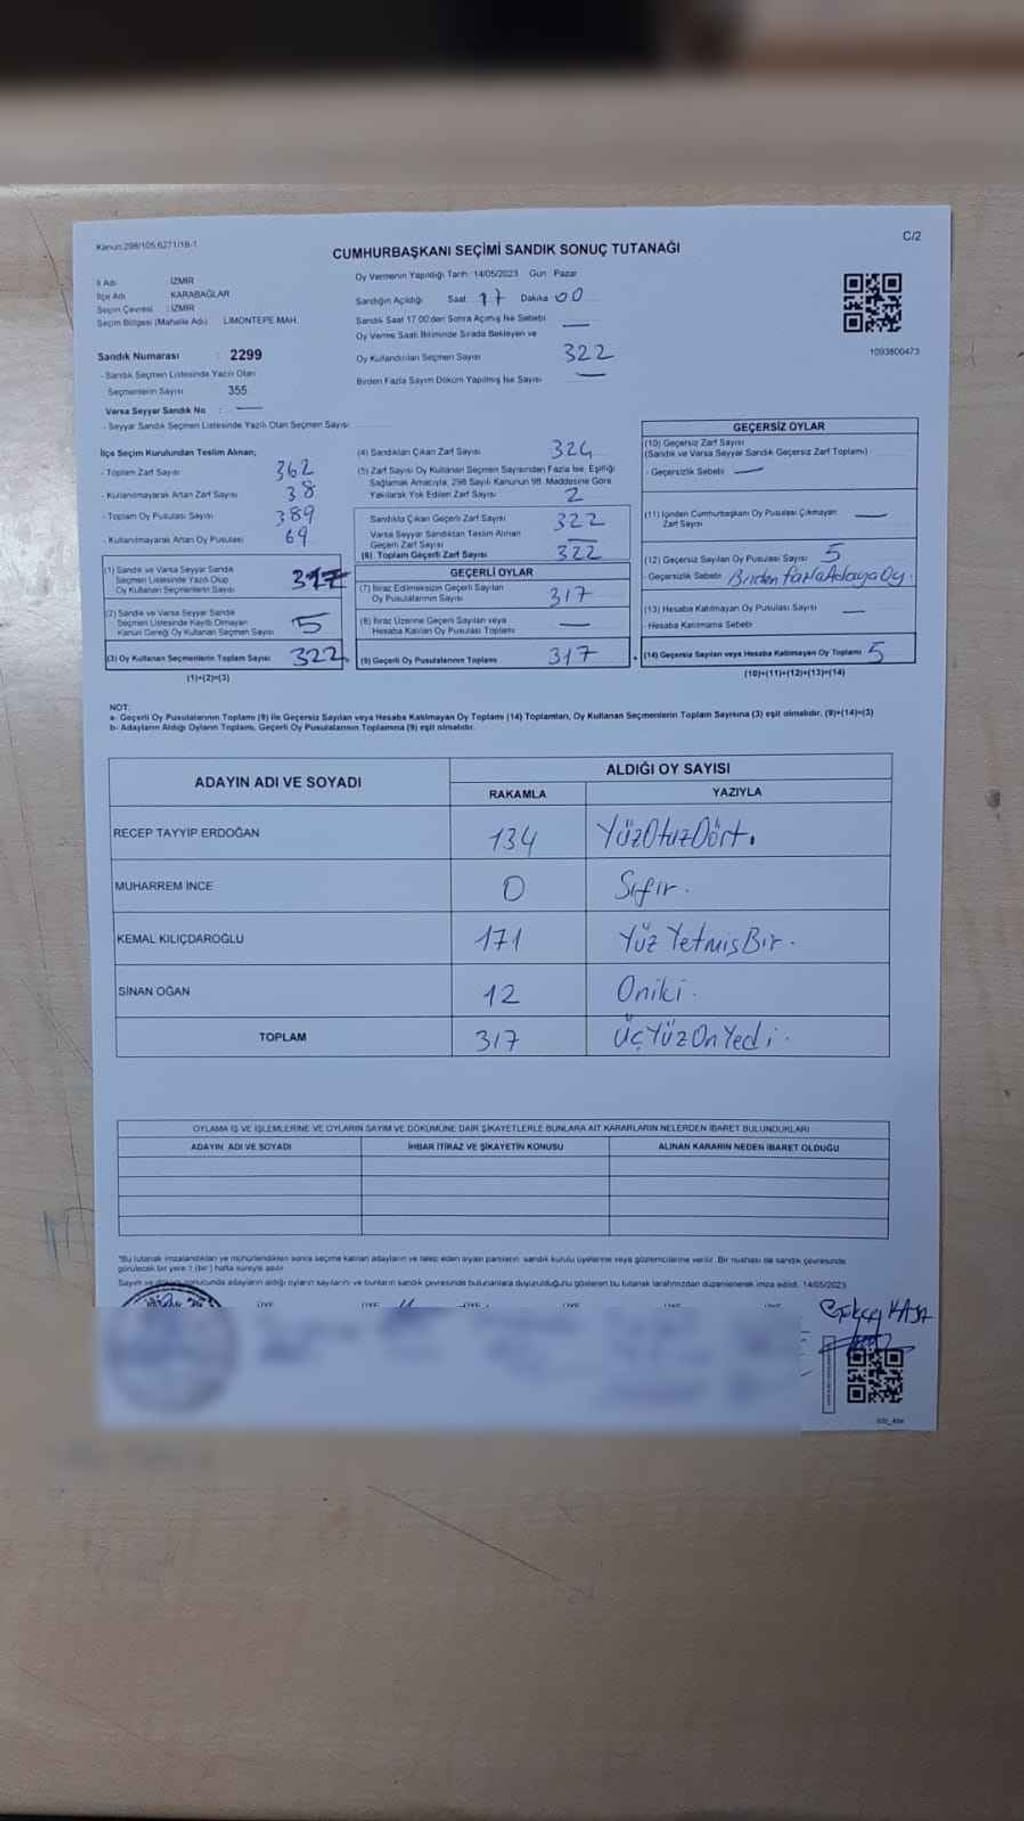 Kanun:298/105,6271/18-1
C/2
CUMHURBAŞKANI SEÇİMİ SANDIK SONUÇ TUTANAĞI
İl Adı : İZMİR
İlçe Adı : KARABAĞLAR
Seçim Çevresi : İZMİR
Seçim Bölgesi (Mahalle Adı) : LİMONTEPE MAH.
Sandık Numarası : 2299
- Sandık Seçmen Listesinde Yazılı Olan
Seçmenlerin Sayısı : 355
Varsa Seyyar Sandık No : —
- Seyyar Sandık Seçmen Listesinde Yazılı Olan Seçmen Sayısı
Oy Vermenin Yapıldığı Tarih: 14/05/2023 Gün: Pazar
Sandığın Açıldığı Saat 17 Dakika 00
Sandık Saat 17.00'den Sonra Açılmış İse Sebebi —
Oy Verme Saati Bitiminde Sırada Bekleyen ve
Oy Kullandırılan Seçmen Sayısı 322
Birden Fazla Sayım Döküm Yapılmış İse Sayısı —
1093800473
İlçe Seçim Kurulundan Teslim Alınan;
- Toplam Zarf Sayısı 362
- Kullanılmayarak Artan Zarf Sayısı 38
- Toplam Oy Pusulası Sayısı 389
- Kullanılmayarak Artan Oy Pusulası 69
(1) Sandık ve Varsa Seyyar Sandık
Seçmen Listesinde Yazılı Olup
Oy Kullanan Seçmenlerin Sayısı 317
(2) Sandık ve Varsa Seyyar Sandık
Seçmen Listesinde Kayıtlı Olmayan
Kanun Gereği Oy Kullanan Seçmen Sayısı 5
(3) Oy Kullanan Seçmenlerin Toplam Sayısı 322
(1)+(2)=(3)
(4) Sandıktan Çıkan Zarf Sayısı 324
(5) Zarf Sayısı Oy Kullanan Seçmen Sayısından Fazla İse, Eşitliği
Sağlamak Amacıyla, 298 Sayılı Kanunun 98. Maddesine Göre
Yakılarak Yok Edilen Zarf Sayısı 2
Sandıkta Çıkan Geçerli Zarf Sayısı 322
Varsa Seyyar Sandıktan Teslim Alınan
Geçerli Zarf Sayısı —
(6) Toplam Geçerli Zarf Sayısı 322
GEÇERLİ OYLAR
(7) İtiraz Edilmeksizin Geçerli Sayılan
Oy Pusulalarının Sayısı 317
(8) İtiraz Üzerine Geçerli Sayılan veya
Hesaba Katılan Oy Pusulası Toplamı —
(9) Geçerli Oy Pusulalarının Toplamı 317
GEÇERSİZ OYLAR
(10) Geçersiz Zarf Sayısı
(Sandık ve Varsa Seyyar Sandık Geçersiz Zarf Toplamı)
- Geçersizlik Sebebi —
(11) İçinden Cumhurbaşkanı Oy Pusulası Çıkmayan
Zarf Sayısı —
(12) Geçersiz Sayılan Oy Pusulası Sayısı 5
- Geçersizlik Sebebi Birden fazla Adaya Oy.
(13) Hesaba Katılmayan Oy Pusulası Sayısı —
- Hesaba Katılmama Sebebi
(14) Geçersiz Sayılan veya Hesaba Katılmayan Oy Toplamı 5
(10)+(11)+(12)+(13)=(14)
NOT:
a- Geçerli Oy Pusulalarının Toplamı (9) ile Geçersiz Sayılan veya Hesaba Katılmayan Oy Toplamı (14) Toplamları, Oy Kullanan Seçmenlerin Toplam Sayısına (3) eşit olmalıdır. (9)+(14)=(3)
b- Adayların Aldığı Oyların Toplamı, Geçerli Oy Pusulalarının Toplamına (9) eşit olmalıdır.
ADAYIN ADI VE SOYADI
ALDIĞI OY SAYISI
RAKAMLA YAZIYLA
RECEP TAYYİP ERDOĞAN 134 YüzOtuzDört.
MUHARREM İNCE 0 Sıfır.
KEMAL KILIÇDAROĞLU 171 Yüz YetmişBir.
SİNAN OĞAN 12 Oniki.
TOPLAM 317 ÜçYüzOnYedi.
OYLAMA İŞ VE İŞLEMLERİNE VE OYLARIN SAYIM VE DÖKÜMÜNE DAİR ŞİKAYETLERLE BUNLARA AİT KARARLARIN NELERDEN İBARET BULUNDUKLARI
ADAYIN ADI VE SOYADI İHBAR İTİRAZ VE ŞİKAYETİN KONUSU ALINAN KARARIN NEDEN İBARET OLDUĞU
*Bu tutanak imzalandıktan ve mühürlendikten sonra seçime katılan adayların ve talep eden siyasi partilerin sandık kurulu üyelerine veya gözlemcilerine verilir. Bir nüshası da sandık çevresinde
görülecek bir yere 1 (bir) hafta süreyle asılır.
Sayım ve döküm sonucunda adayların aldığı oyların sayılarını ve bunların sandık çevresinde bulunanlara duyurulduğunu gösteren bu tutanak tarafımızdan düzenlenerek imza edildi. 14/05/2023